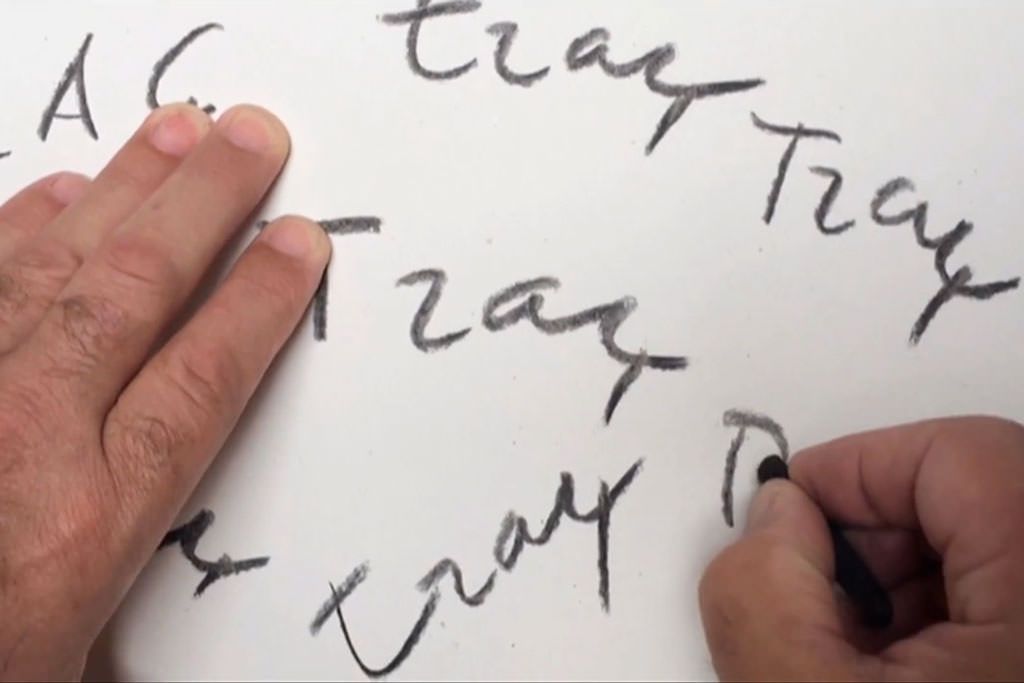 A C
tray
Tray
Tray
tray